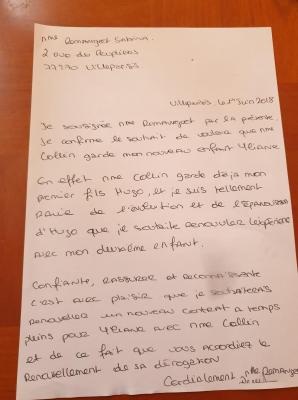 Mme Romanvejeot Sabrina.
2 rue des Peupliers
77270 Villeparisis
Villeparisis, le 1er Juin 2018
Je soussignée Mme Romanvejeot par la présente
Je confirme le souhait de vouloir que Mme
Collin garde mon nouveau enfant Yliane
En effet Mme Collin garde déjà mon
premier fils Hugo, et je suis tellement
ravie de l'évolution et de l'épanouissement
d'Hugo que je souhaite renouveler l'expérience
avec mon deuxième enfant.
Confiante, rassurer et reconnaissante
c'est avec plaisir que je souhaiterais
renouveler un nouveau contrat a temps
pleins pour Yliane avec Mme Collin
et de ce fait que vous accordiez le
Renouvellement de sa dérogation
Cordialement Mme